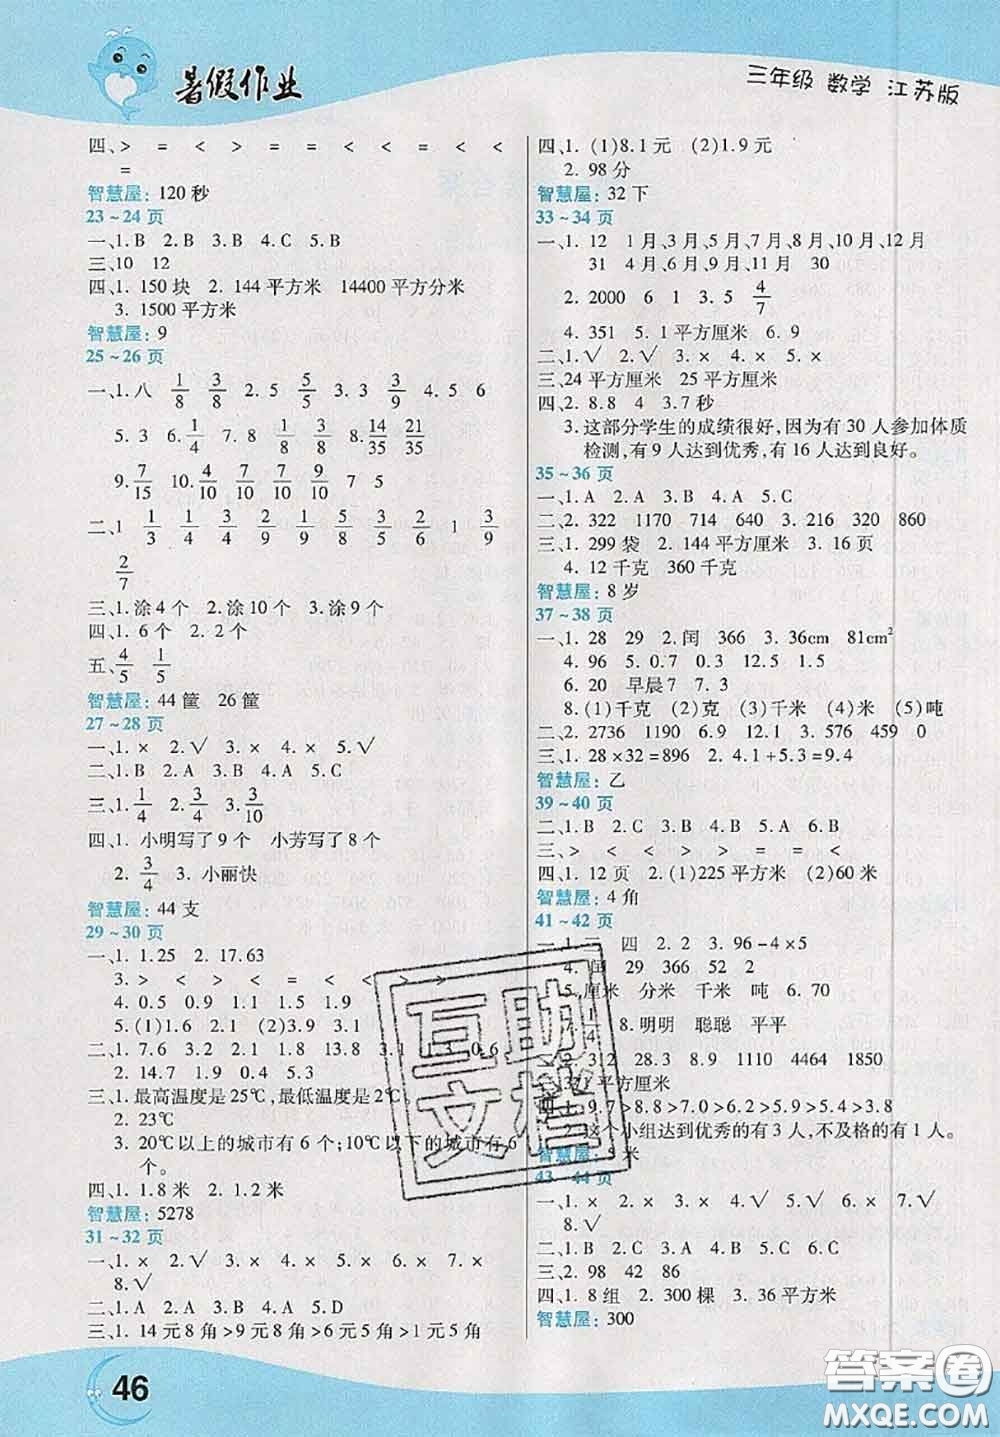 暑假作业
三年级 数学 江苏版
四、> = < > = = < < = < <
=
智慧屋: 120 秒
23~24 页
一、1. B 2. B 3. B 4. C 5. B
三、10 12
四、1. 150 块 2. 144 平方米 14400 平方分米
3. 1500 平方米
智慧屋: 9
25~26 页
一、1. 八 1/8 3/8 2. 5 5/5 3. 3 3/9 4. 5 6
5. 3 6. 1/4 7. 8 1/8 8/8 8. 14/35 21/35
9. 7/15 10. 4/10 7/10 7/10 9/10
二、1 1/3 3/4 2/9 1/9 5/8 3/8 2/6 1 3/9
2/7
三、1. 涂 4 个 2. 涂 10 个 3. 涂 9 个
四、1. 6 个 2. 2 个
五、4/5 1/5
智慧屋: 44 筐 26 筐
27~28 页
一、1. × 2. √ 3. × 4. × 5. √
二、1. B 2. B 3. C 4. B 5. A
三、1. 1/4 2. 3/4 3. 3/10
四、1. 小明写了 9 个 小芳写了 8 个
2. 3/4 3. 小丽快
智慧屋: 44 支
29~30 页
一、1. 1.25 2. 17.63
3. > > < > < = < < > >
4. 0.5 0.9 1.1 1.5 1.8
5. (1) 1.6 2.1 (2) 3.9 3.1
二、1. 7.6 3.2 2.4 1.8 13.8 3.1 0.6
2. 14.7 1.9 0.4 5.3
三、1. 最高温度是 25℃, 最低温度是 2℃。
2. 23℃
3. 20℃以上的城市有 6 个; 10℃以下的城市有 6
个。
四、1. 1.8 米 2. 1.2 米
智慧屋: 5278
31~32 页
一、1. × 2. √ 3. √ 4. × 5. × 6. × 7. ×
8. √
二、1. A 2. B 3. B 4. A 5. D
三、1. 14 元 8 角>9 元 8 角>6 元 5 角>1 元 5 角
46
四、1. (1) 8.1 元 (2) 1.9 元
2. 98 分
智慧屋: 32 下
33~34 页
一、1. 12 1 月、3 月、5 月、7 月、8 月、10 月、12 月
31 4 月、6 月、9 月、11 月 30
2. 2000 6 1 3. 5 4/7
4. 351 5. 1 平方厘米 6. 9
二、1. √ 2. √ 3. × 4. × 5. ×
三、24 平方厘米 25 平方厘米
四、2. 8.8 4 3.7 秒
3. 这部分学生的成绩很好, 因为有 30 人参加体质
检测, 有 9 人达到优秀, 有 16 人达到良好。
35~36 页
一、1. A 2. A 3. B 4. A 5. C
二、2. 322 1170 714 640 3. 216 320 860
三、1. 299 袋 2. 144 平方厘米 3. 16 页
4. 12 千克 360 千克
智慧屋: 8 岁
37~38 页
一、1. 28 29 2. 闰 366 3. 36cm 81cm²
4. 96 5. 0.7 0.3 12.5 1.5
6. 20 早晨 7 7. 3
8. (1) 千克 (2) 克 (3) 千米 (4) 米 (5) 吨
二、2. 2736 1190 6.9 12.1 3. 576 459 0
三、1. 28×32=896 2. 4.1+5.3=9.4
智慧屋: 乙
39~40 页
二、1. B 2. C 3. B 4. B 5. A 6. B
三、> < < > > = = <
四、1. 12 页 2. (1) 225 平方米 (2) 60 米
智慧屋: 4 角
41~42 页
一、1. 四 2. 2 3. 96-4×5
4. 闰 29 366 52 2
5. 厘米 分米 千米 吨 6. 70
8. 明明 聪聪 平平
312 28.3 8.9 1110 4464 1850
平方厘米
四、1. 9.7>8.8>7.0>6.2>5.9>5.4>3.8
2. 这个小组达到优秀的有 3 人, 不及格的有 1 人。
智慧屋: 米
43~44 页
一、1. × 2. × 3. × 4. √ 5. √ 6. × 7. √
8. √
二、1. B 2. C 3. A 4. C 5. B
三、2. 98 42 86
四、1. 8 组 2. 300 棵 3. 36 平方米
智慧屋: 300
互助
文档
答案圈
MXQE.COM